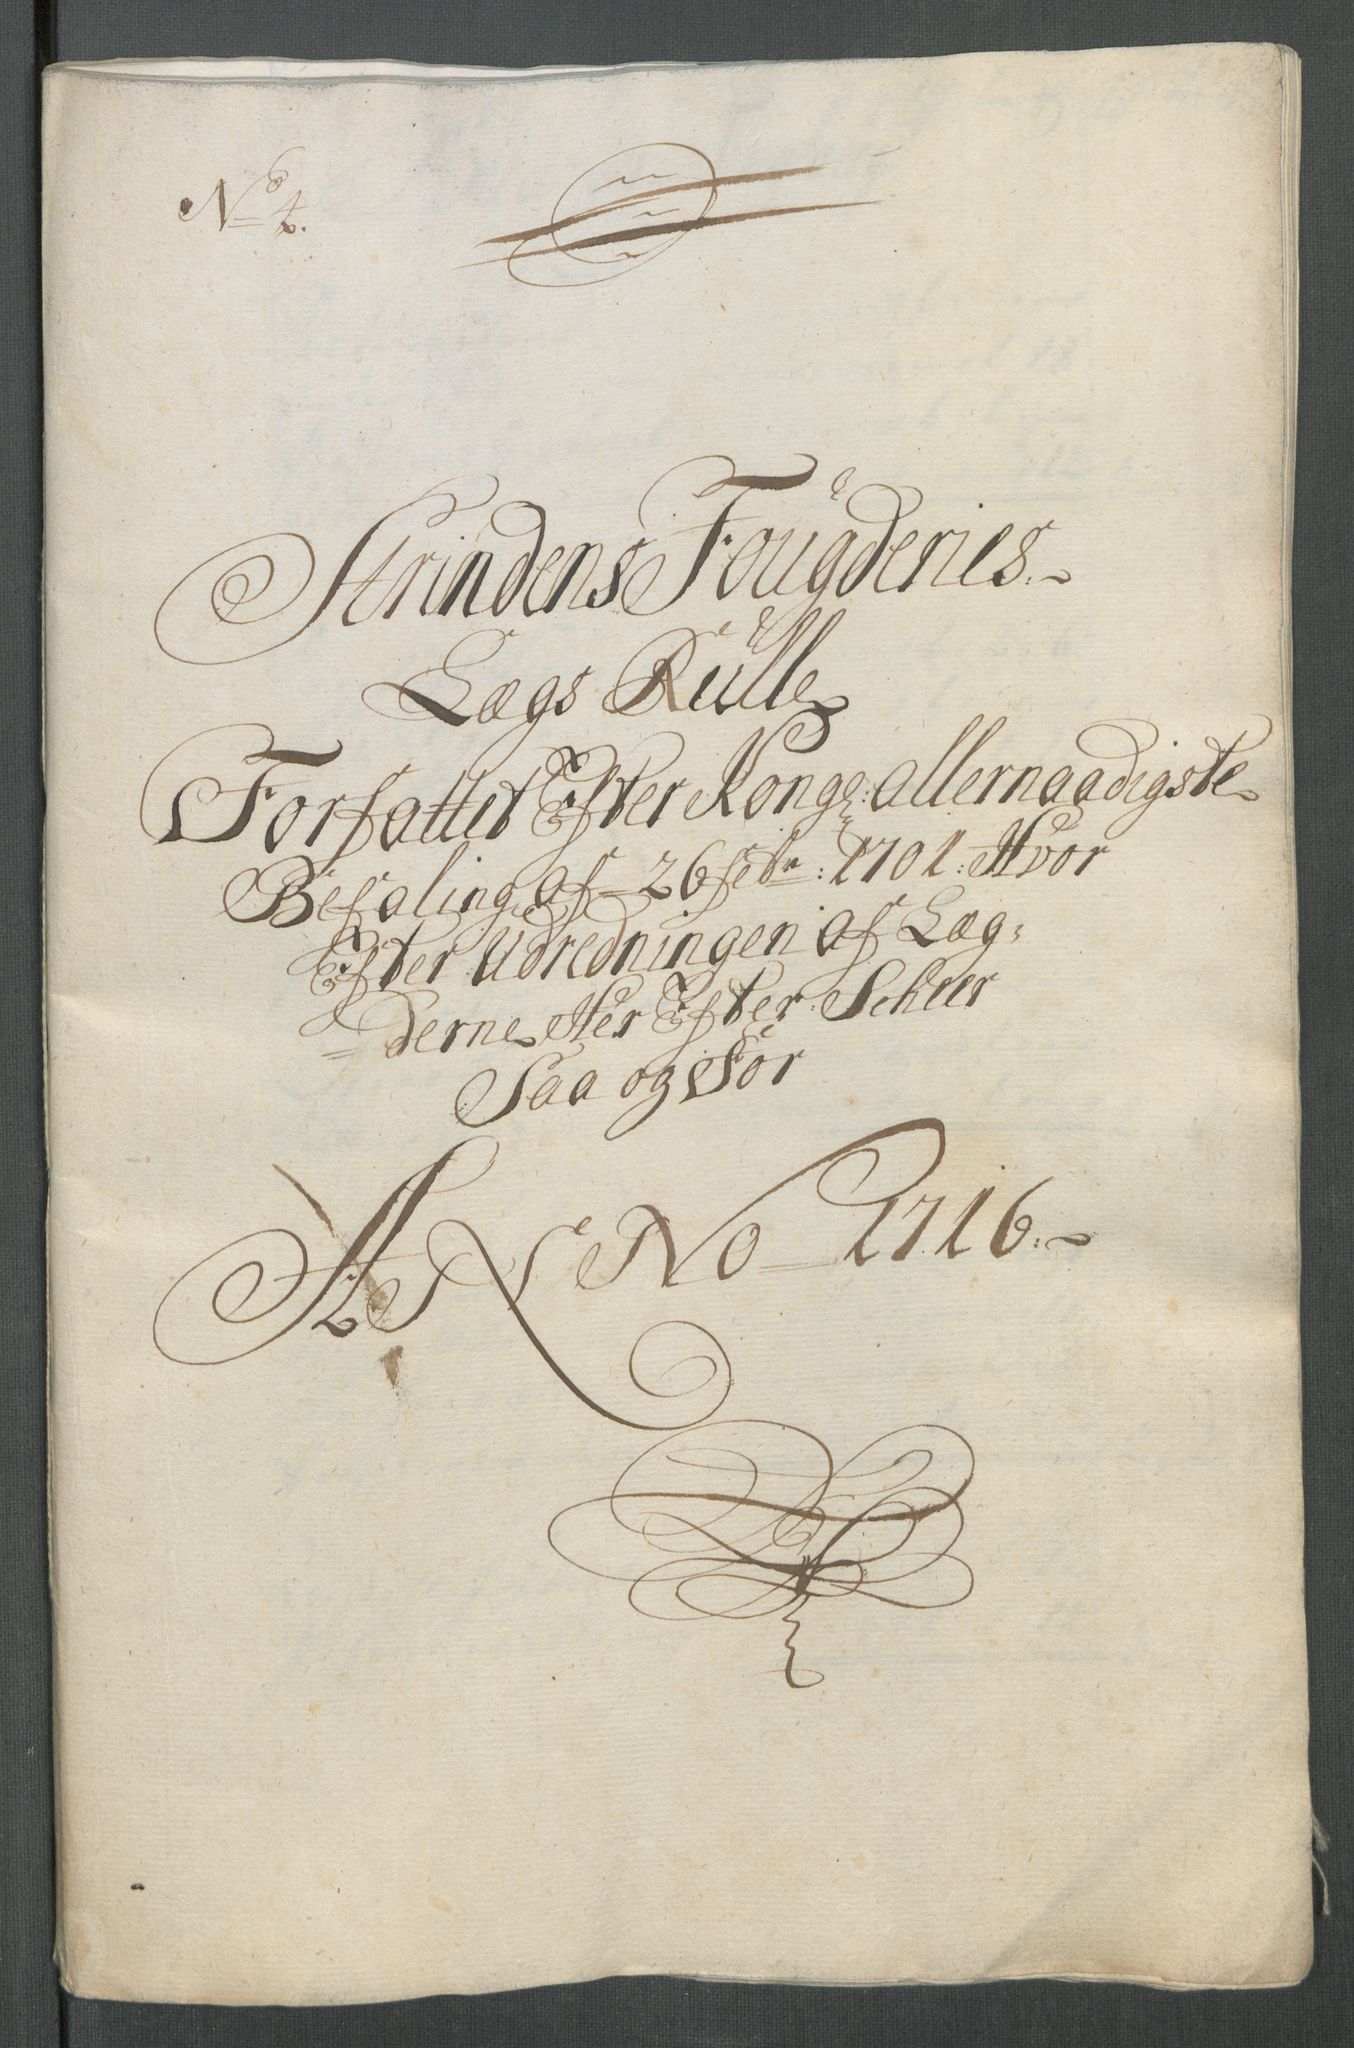 No 4.
Strindens Fougderies
Lægs Rulle
Forfattet Efter Kong: allernaadigste
Befaling af 26 febr: 1701: Hvor
Efter Udredningen af Læg-
derne Her Efter Scheer
Saa og For
ANNO 1716.